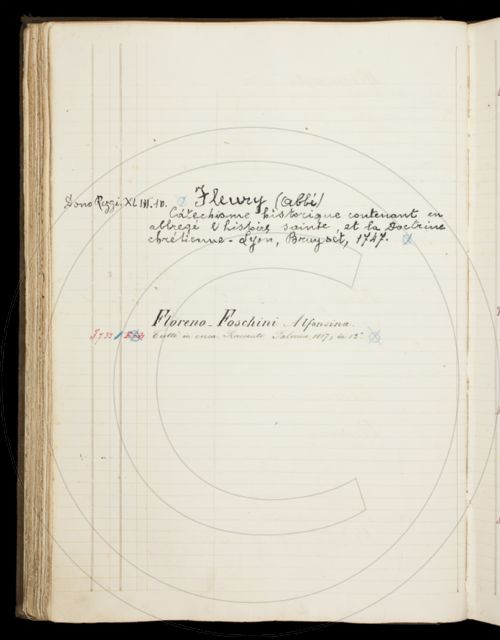 Dono Reggi. XL III. 10. Fleury (abbé)
Catechisme historique contenant en
abbregé l'histoire sainte, et la Doctrine
chrétienne - Lyon, Bruyset, 1747.
Floreno-Foschini Alfonsina.
Tutti in Racconto Palermo, in 12°